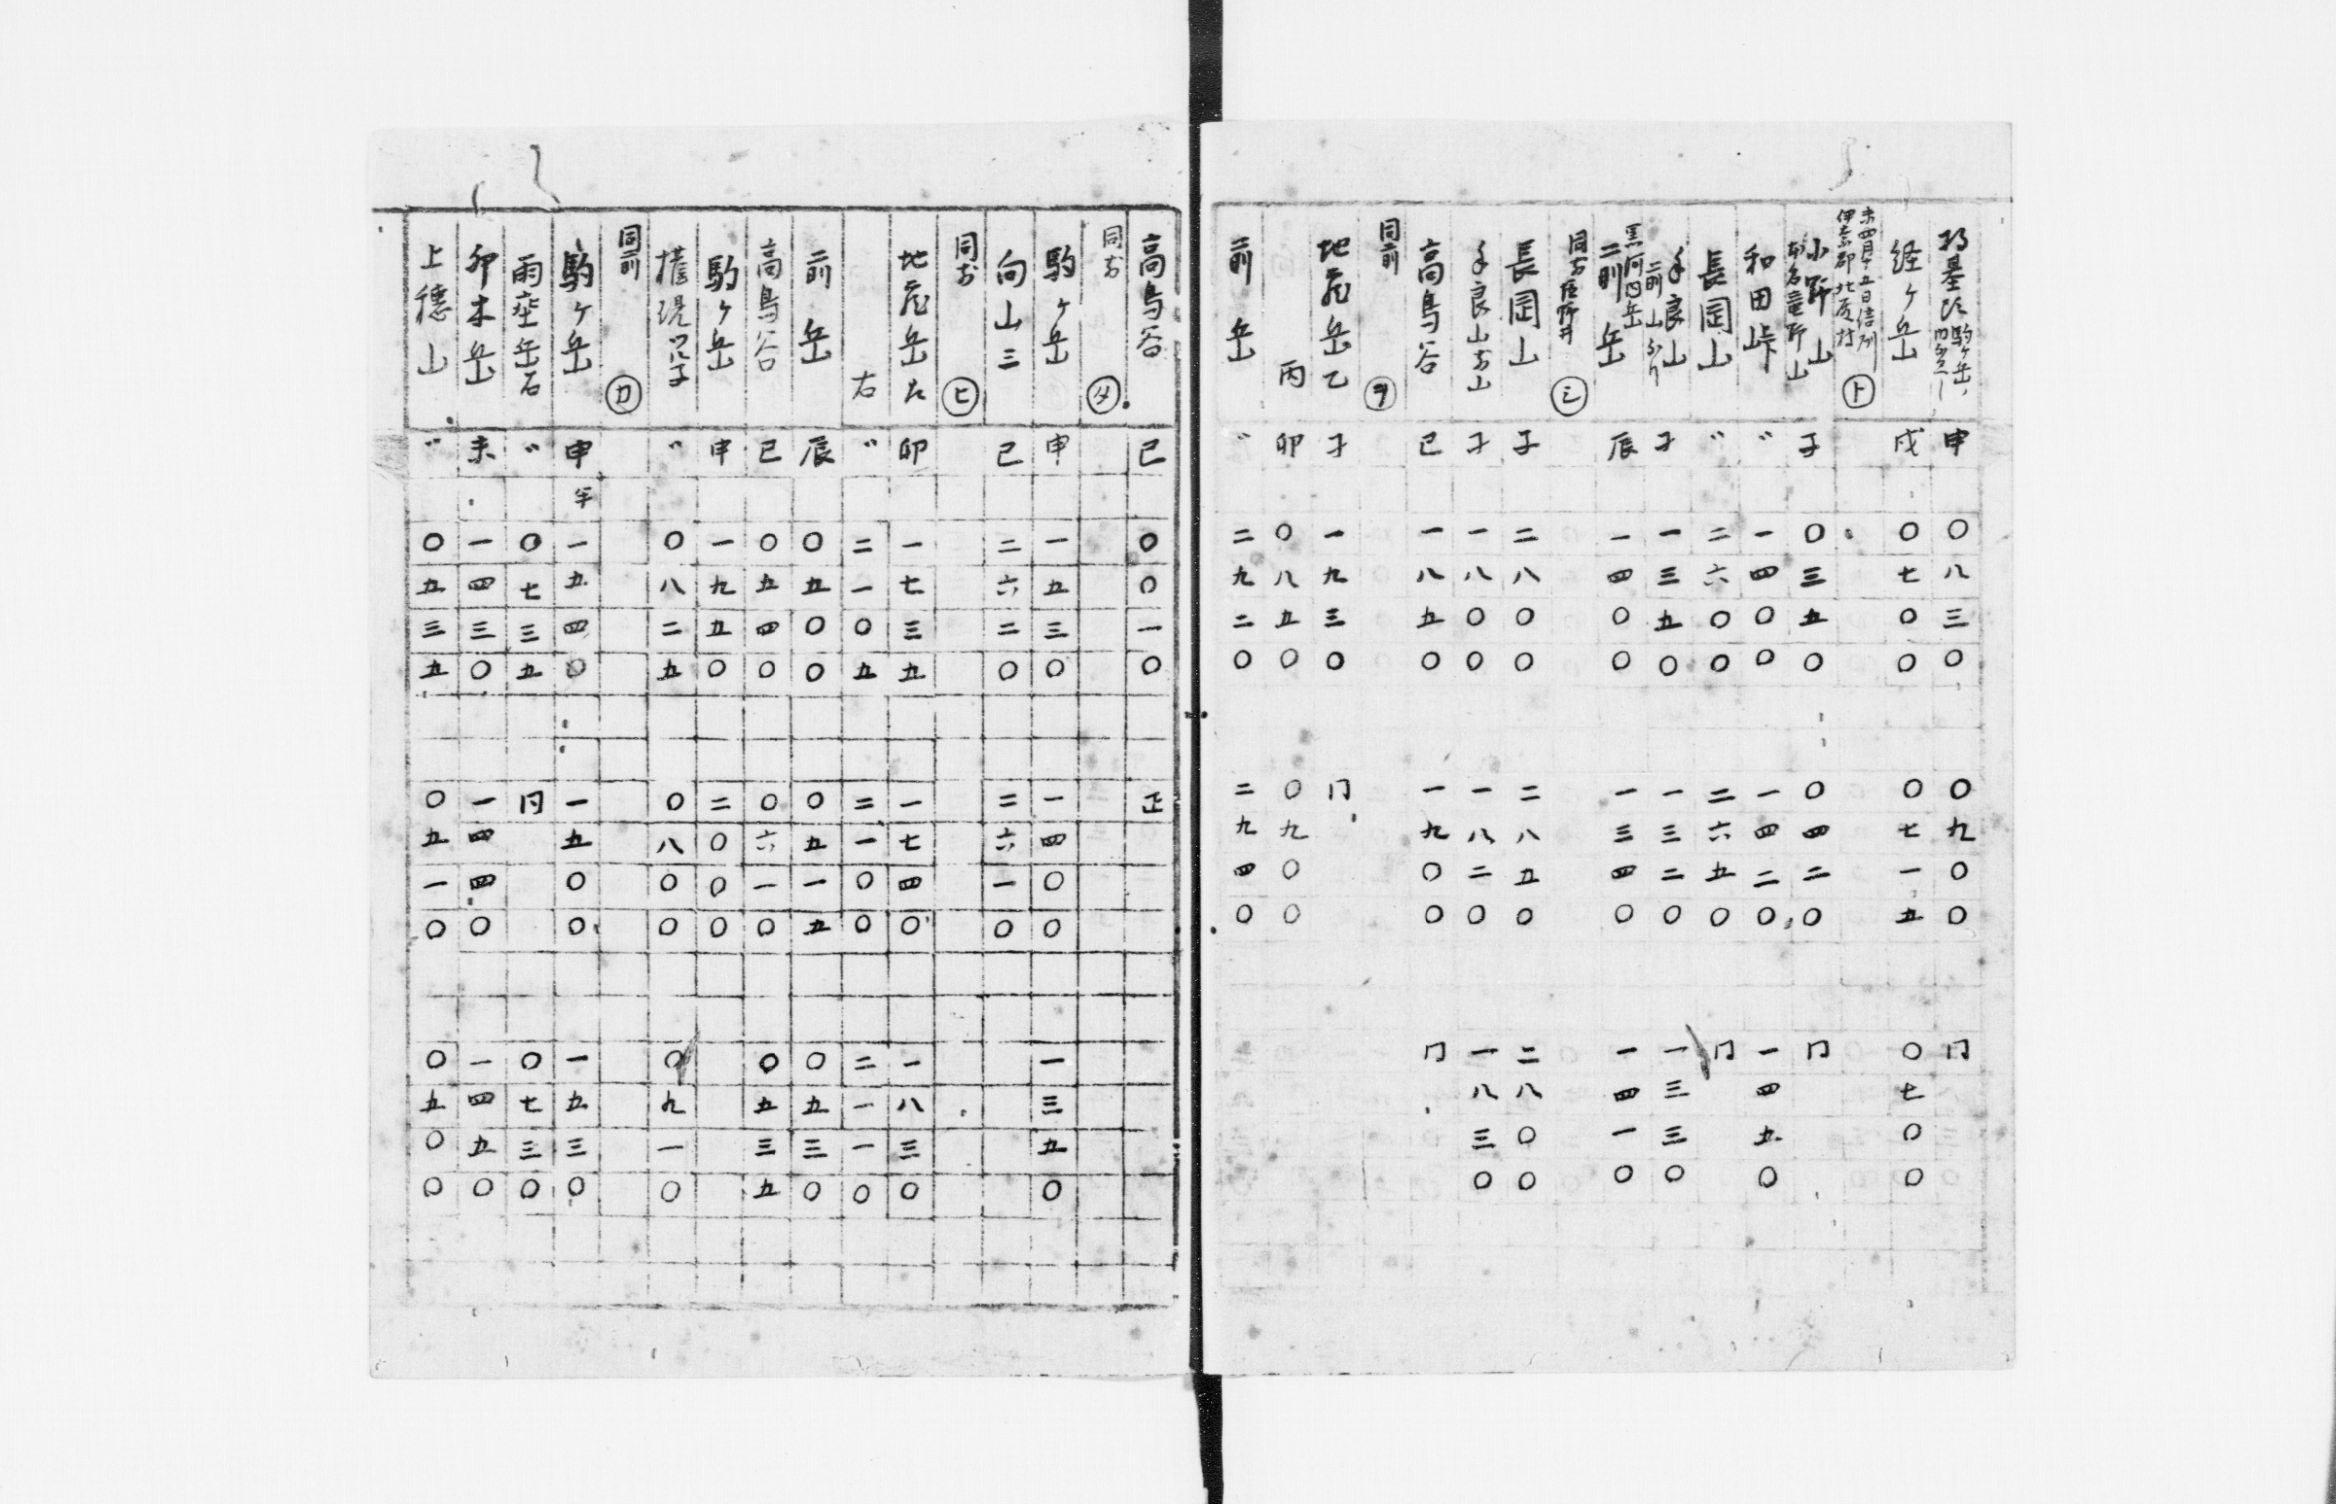 申 〇八三〇 〇九〇〇 冂
経ヶ岳 戌 〇七〇〇 〇七一五 〇七〇〇
未四月十五日信州
伊奈郡 北殿村 ㋣
小野山 子 〇三五〇 〇四二〇 冂
和田峠 〃 一四〇〇 一四二〇 一四五〇
長岡山 〃 二六〇〇 二六五〇 冂
手良山 子 一三五〇 一三二〇 一三三〇
前岳 辰 一四〇〇 一三四〇 一四一〇
㋛
長岡山 子 二八〇〇 二八五〇 二八〇〇
手良山前山 子 一八〇〇 一八二〇 一八三〇
高鳥谷 巳 一八五〇 一九〇〇 冂
同前 ㋾
地蔵岳乙 子 一九三〇 冂
丙 卯 〇八五〇 〇九〇〇
前岳 〃 二九二〇 二九四〇
高鳥谷 巳 〇〇一〇 正
同前 ㋟
駒ヶ岳 申 一五三〇 一四〇〇 一三五〇
向山三 巳 二六二〇 二六一〇
同前 ㋪
地蔵岳左 卯 一七三五 一七四〇 一八三〇
右 〃 二一〇五 二一〇〇 二一一〇
前岳 辰 〇五〇〇 〇五一五 〇五三〇
高鳥谷 巳 〇五四〇 〇六一〇 〇五三五
駒ヶ岳 申 一九五〇 二〇〇〇
権現 〃 〇八二五 〇八〇〇 〇九一〇
同前 ㋕
駒ヶ岳 申 半 一五四〇 一五〇〇 一五三〇
雨座岳右 〃 〇七三五 冂 〇七三〇
卯木岳 未 一四三〇 一四四〇 一四五〇
上穂山 〃 〇五三五 〇五一〇 〇五〇〇